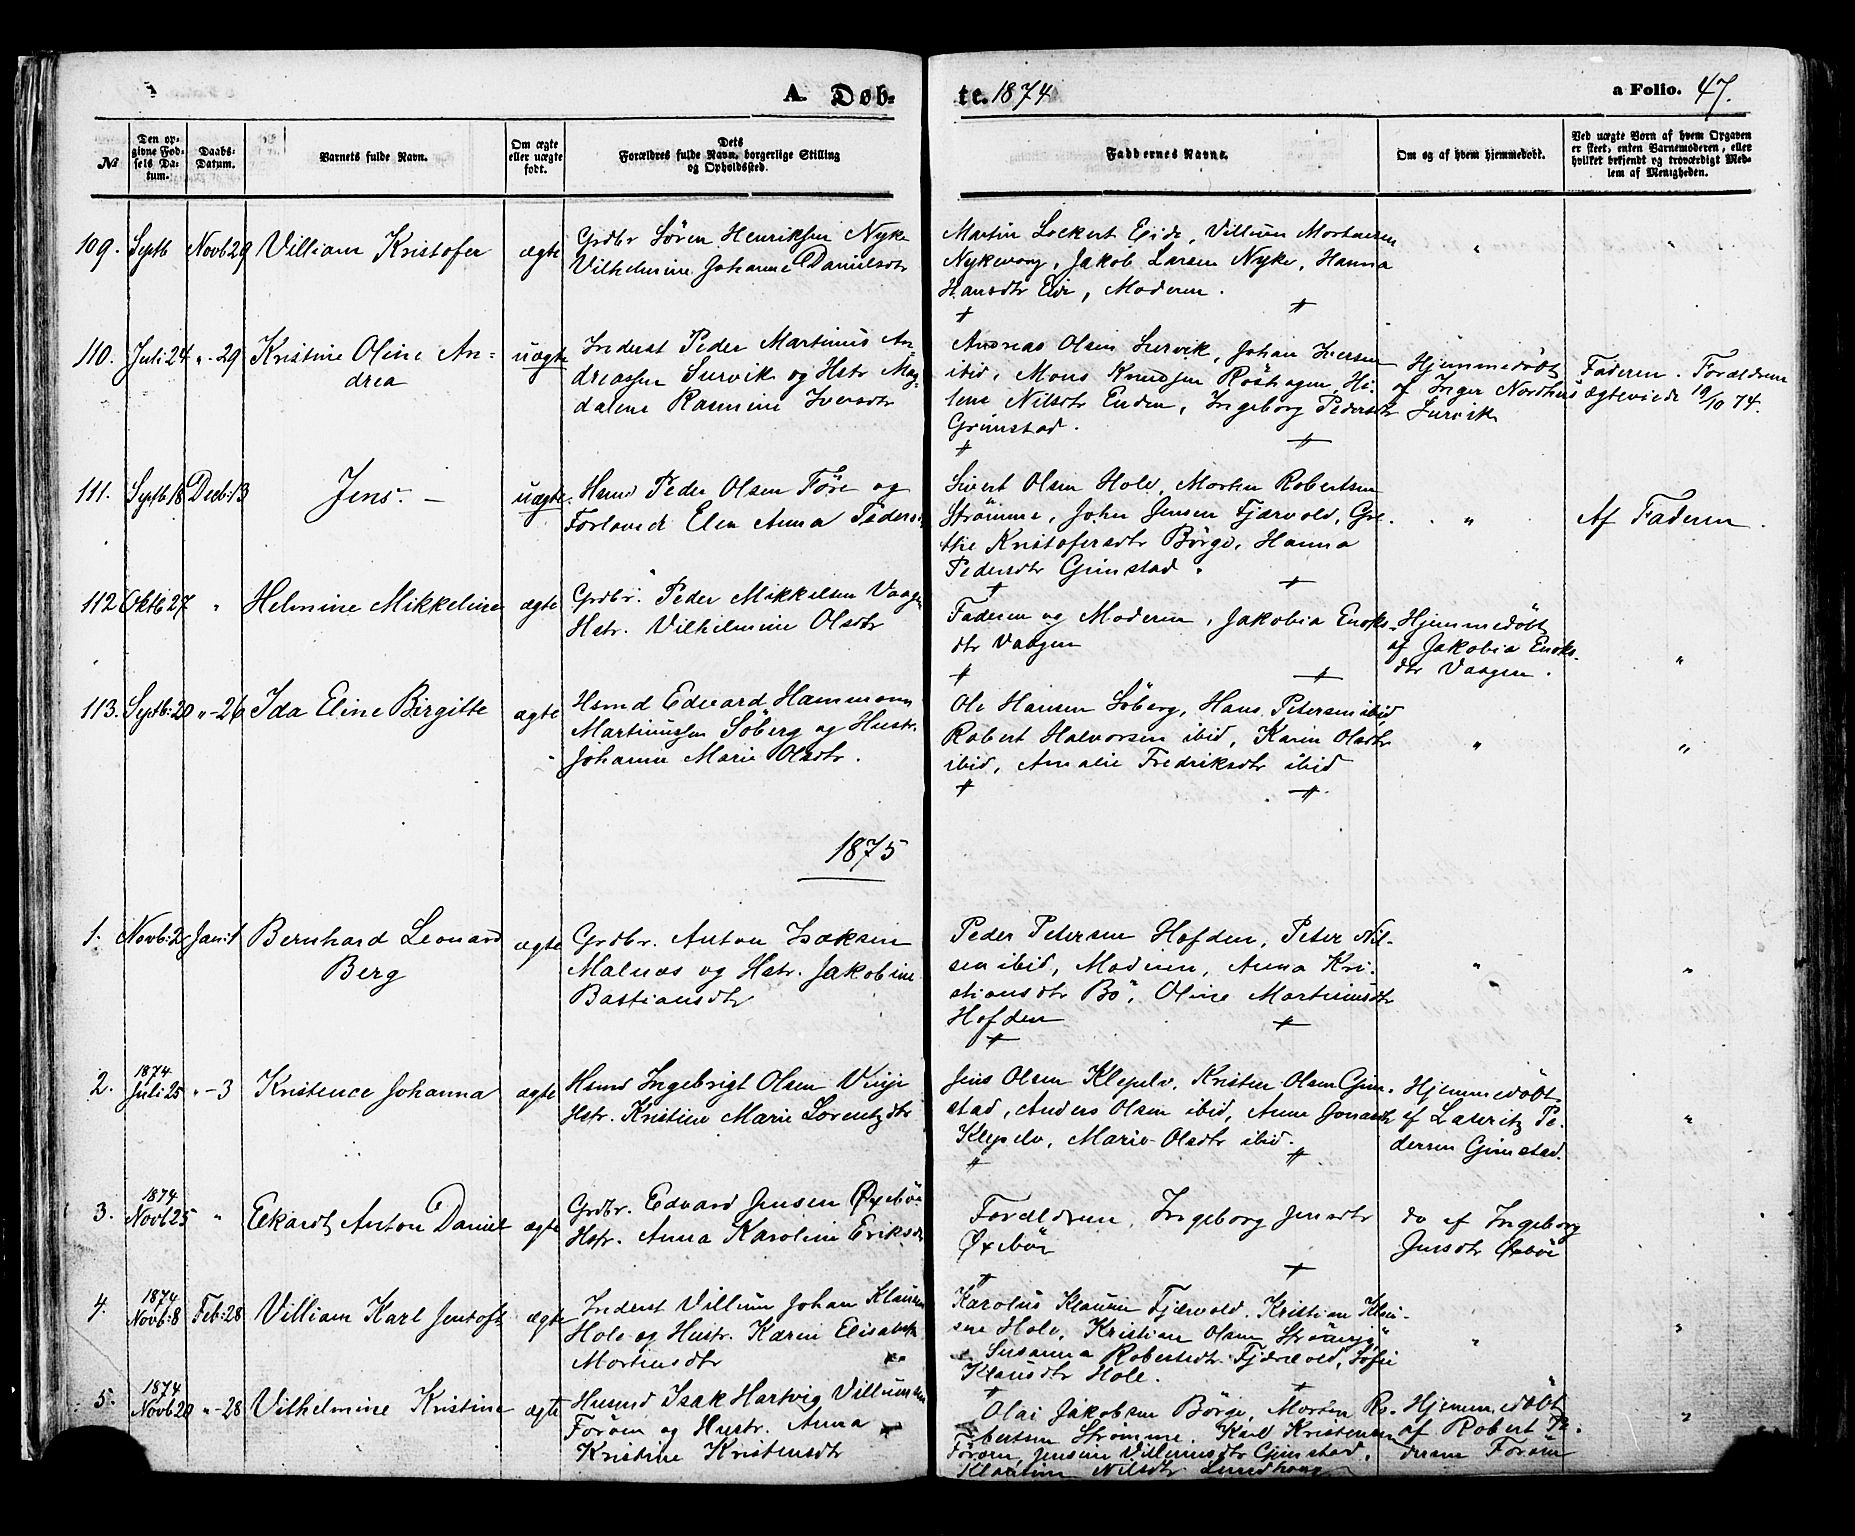 A. Døb-
te. 1874
a Folio. 47.
№
Den op-
givne Fød-
sels Da-
tum.
Daabs-
Datum.
Barnets fulde Navn.
Om ægte
eller uægte
født.
Dets
Forældres fulde Navn, borgerlige Stilling
og Opholdssted.
Faddernes Navne.
Om og af hvem hjemmedøbt.
Ved uægte Børn af hvem Opgaven
er skeet, enten Barnemoderen, eller
hvilket bekjendt og troværdigt Med-
lem af Menigheden.
109. Septb Novb 29 Villiam Kristofer ægte
Grdbr Sören Henriksen Nyke
Vilhelmine Johanne Danielsdtr
Martin Lockert Eide, Villum Mortensen
Nykevaag, Jakob Larsen Nyke, Hanna
Hansdtr Eide, Moderen.
110. Juli 24 " - 29 Kristine Oline An-
drea
uægte
Inderst Peder Martinus An-
dreassen Survik og Hstr Mag-
dalena Rasmine Iversdtr
Andreas Olsen Survik, Johan Iversen
ibid, Mons Knudsen Röshagen, He-
lene Nilsdtr Enden, Ingeborg Pedersdtr
Grimstad.
Hjemmedöbt
af Inger Nordhus
Survik
Faderen. Forældrene
ægteviede 19/10 74.
111. Septb 18 Decb: 13 Jens. - uægte.
Hsmd Peder Olsen Före og
Forlovede Elen Anna Peders
Sivert Olsen Hole, Morten Robertsen
Strömme, Johan Jensen Fjærvold, Gre-
the Kristofersdtr Börge, Hanna
Pedersdtr Grimstad.
"
Af Faderen.
112 Oktb 27 " Helmine Mikkeline ægte
Grdbr. Peder Mikkelsen Vaagen
Hstr. Vilhelmine Olsdtr
Faderen og Moderen, Jakobia Enoks-
dtr Vaagen
Hjemmedöbt
af Jakobia Enoks-
dtr Vaagen.
"
113. Septb: 20 " - 26 Ida Eline Birgitte ægte
Hsmd Edvard Hammond
Martinussen Söberg og Hustr.
Johanna Marie Olsdtr.
Ole Hansen Söberg, Hans Petersen ibid
Robert Halvorsen ibid, Karen Olsdtr
ibid, Amalie Fredriksdtr ibid
"
"
1875
1. Novb: 2 Jan: 1 Bernhard Leonard
Berg
ægte
Grdbr. Anton Isaksen
Malnæs og Hstr. Jakobine
Bastiansdtr
Peder Petersen Hofden, Peter Nil-
sen ibid, Moderen, Anna Kri-
stiansdtr Bö, Oline Martinusdtr
Hofden
"
"
2. 1874
Juli 25 " - 3 Kristence Johanna ægte
Hsmd Ingebrigt Olsen Vinje
Hstr. Kristine Marie Lorentzdtr
Jens Olsen Klepelv, Kristen Olsen Grim-
stad, Anders Olsen ibid, Anne Jonasdtr
Klepelv, Marie Olsdtr ibid.
Hjemmedöbt
af Lauritz Pe-
dersen Grimstad.
"
3. 1874
Novb 25 " Eckardt Anton Daniel ægte
Grdbr. Edvard Jensen Øxeböe
Hstr. Anna Karoline Eriksdtr
Forældrene, Ingeborg Jensdtr
Øxeböe
do af Ingeborg
Jensdtr Øxeböe
4. 1874
Novb: 8 Feb: 28 Villiam Karl Jentoft ægte
Inderst Villum Johan Klausen
Hole og Hustr. Karen Elisabeth
Mortensdtr
Karolus Klausen Fjærvold, Kristian Klau-
sen Hole, Kristian Olsen
Susanna Robertsdtr Fjærvold, Sofie
Klausdtr Hole.
"
"
5. 1874
Novb 20 " - 28 Vilhelmine Kristine ægte
Husmd Isak Hartvig Villumsen
Föröen og Hustr. Anna
Kristine Kristensdtr
Olai Jakobsen Börge, Morten Ro-
bertsen Strömme, Karl Kristensen
Föröen, Jensine Villumsdtr Grimstad,
Nilsdtr
Hjemmedöbt
af Robert Pe-
dersen Föröen
"